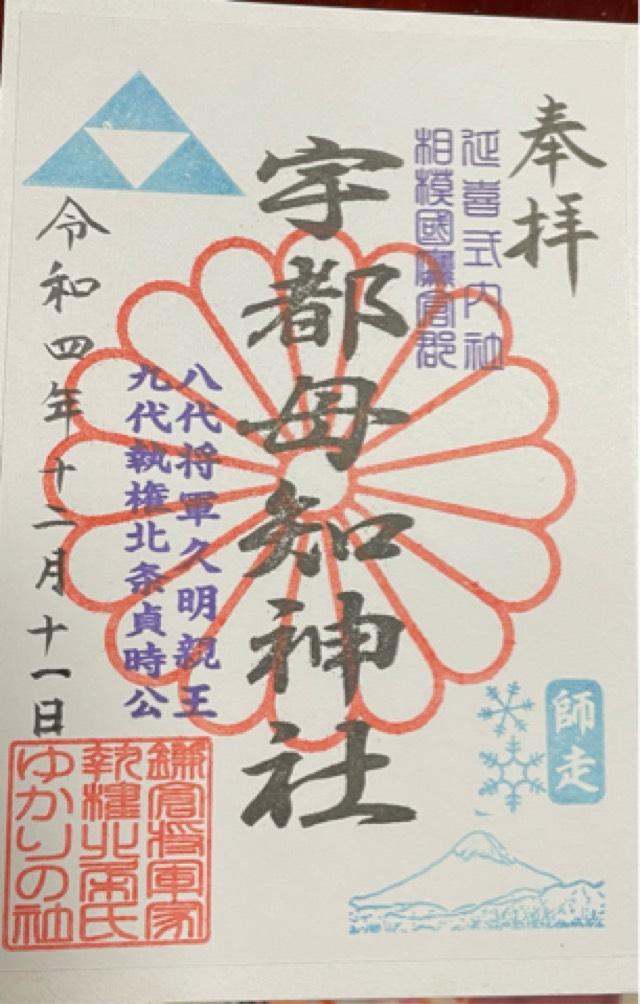 奉拝
延喜式内社
相模國鎌倉郡
宇都母知神社
八代将軍久明親王
九代執権北条貞時公
令和四年十二月十一日
師走
鎌倉将軍家
執権北条氏
ゆかりの社